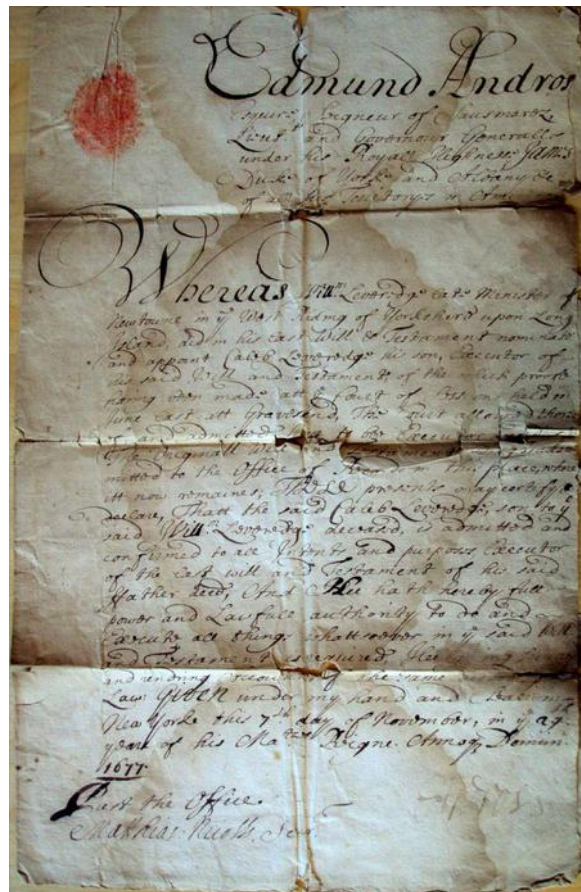 Edmund Andros
Esquire, Seigneur of Sausmarez,
Lieut.t and Governour Generall
under his Royall Highness James
Duke of Yorke and Albany &c
of all his Territorys in
Whereas Will.m Leveredge late Minister of
Newtowne in ye West Riding of Yorkshire upon Long
Island, did in his last Will & Testament nominate
and appoint Caleb Leveredge his son, Executor of
his said Will and Testament, of the which proofe
having been made att ye Court of Sessions held in
June last att Gravesend, The Court allowed
of and admitted to be Executor
The Originall Will and Testament
mitted to the Office of Records in this place, where
itt now remaines, These presents may certify &
declare, That the said Caleb Leveredge, son to ye
said Will.m Leveredge deceased, is admitted and
confirmed to all Intents and purposes Executor
of the last will and Testament of his said
ffather And Hee hath hereby full
power and Lawfull authority to do and
Execute all things whattsoever in ye said Will
and Testament is required, Hee
and rendring the same
Law. Given under my hand and Seale in
New Yorke this 7th day of November, in ye 29
yeare of his Ma.ties Reigne Annoq Domini
1677.
Past the Office.
Matthias Nicolls. Secr.